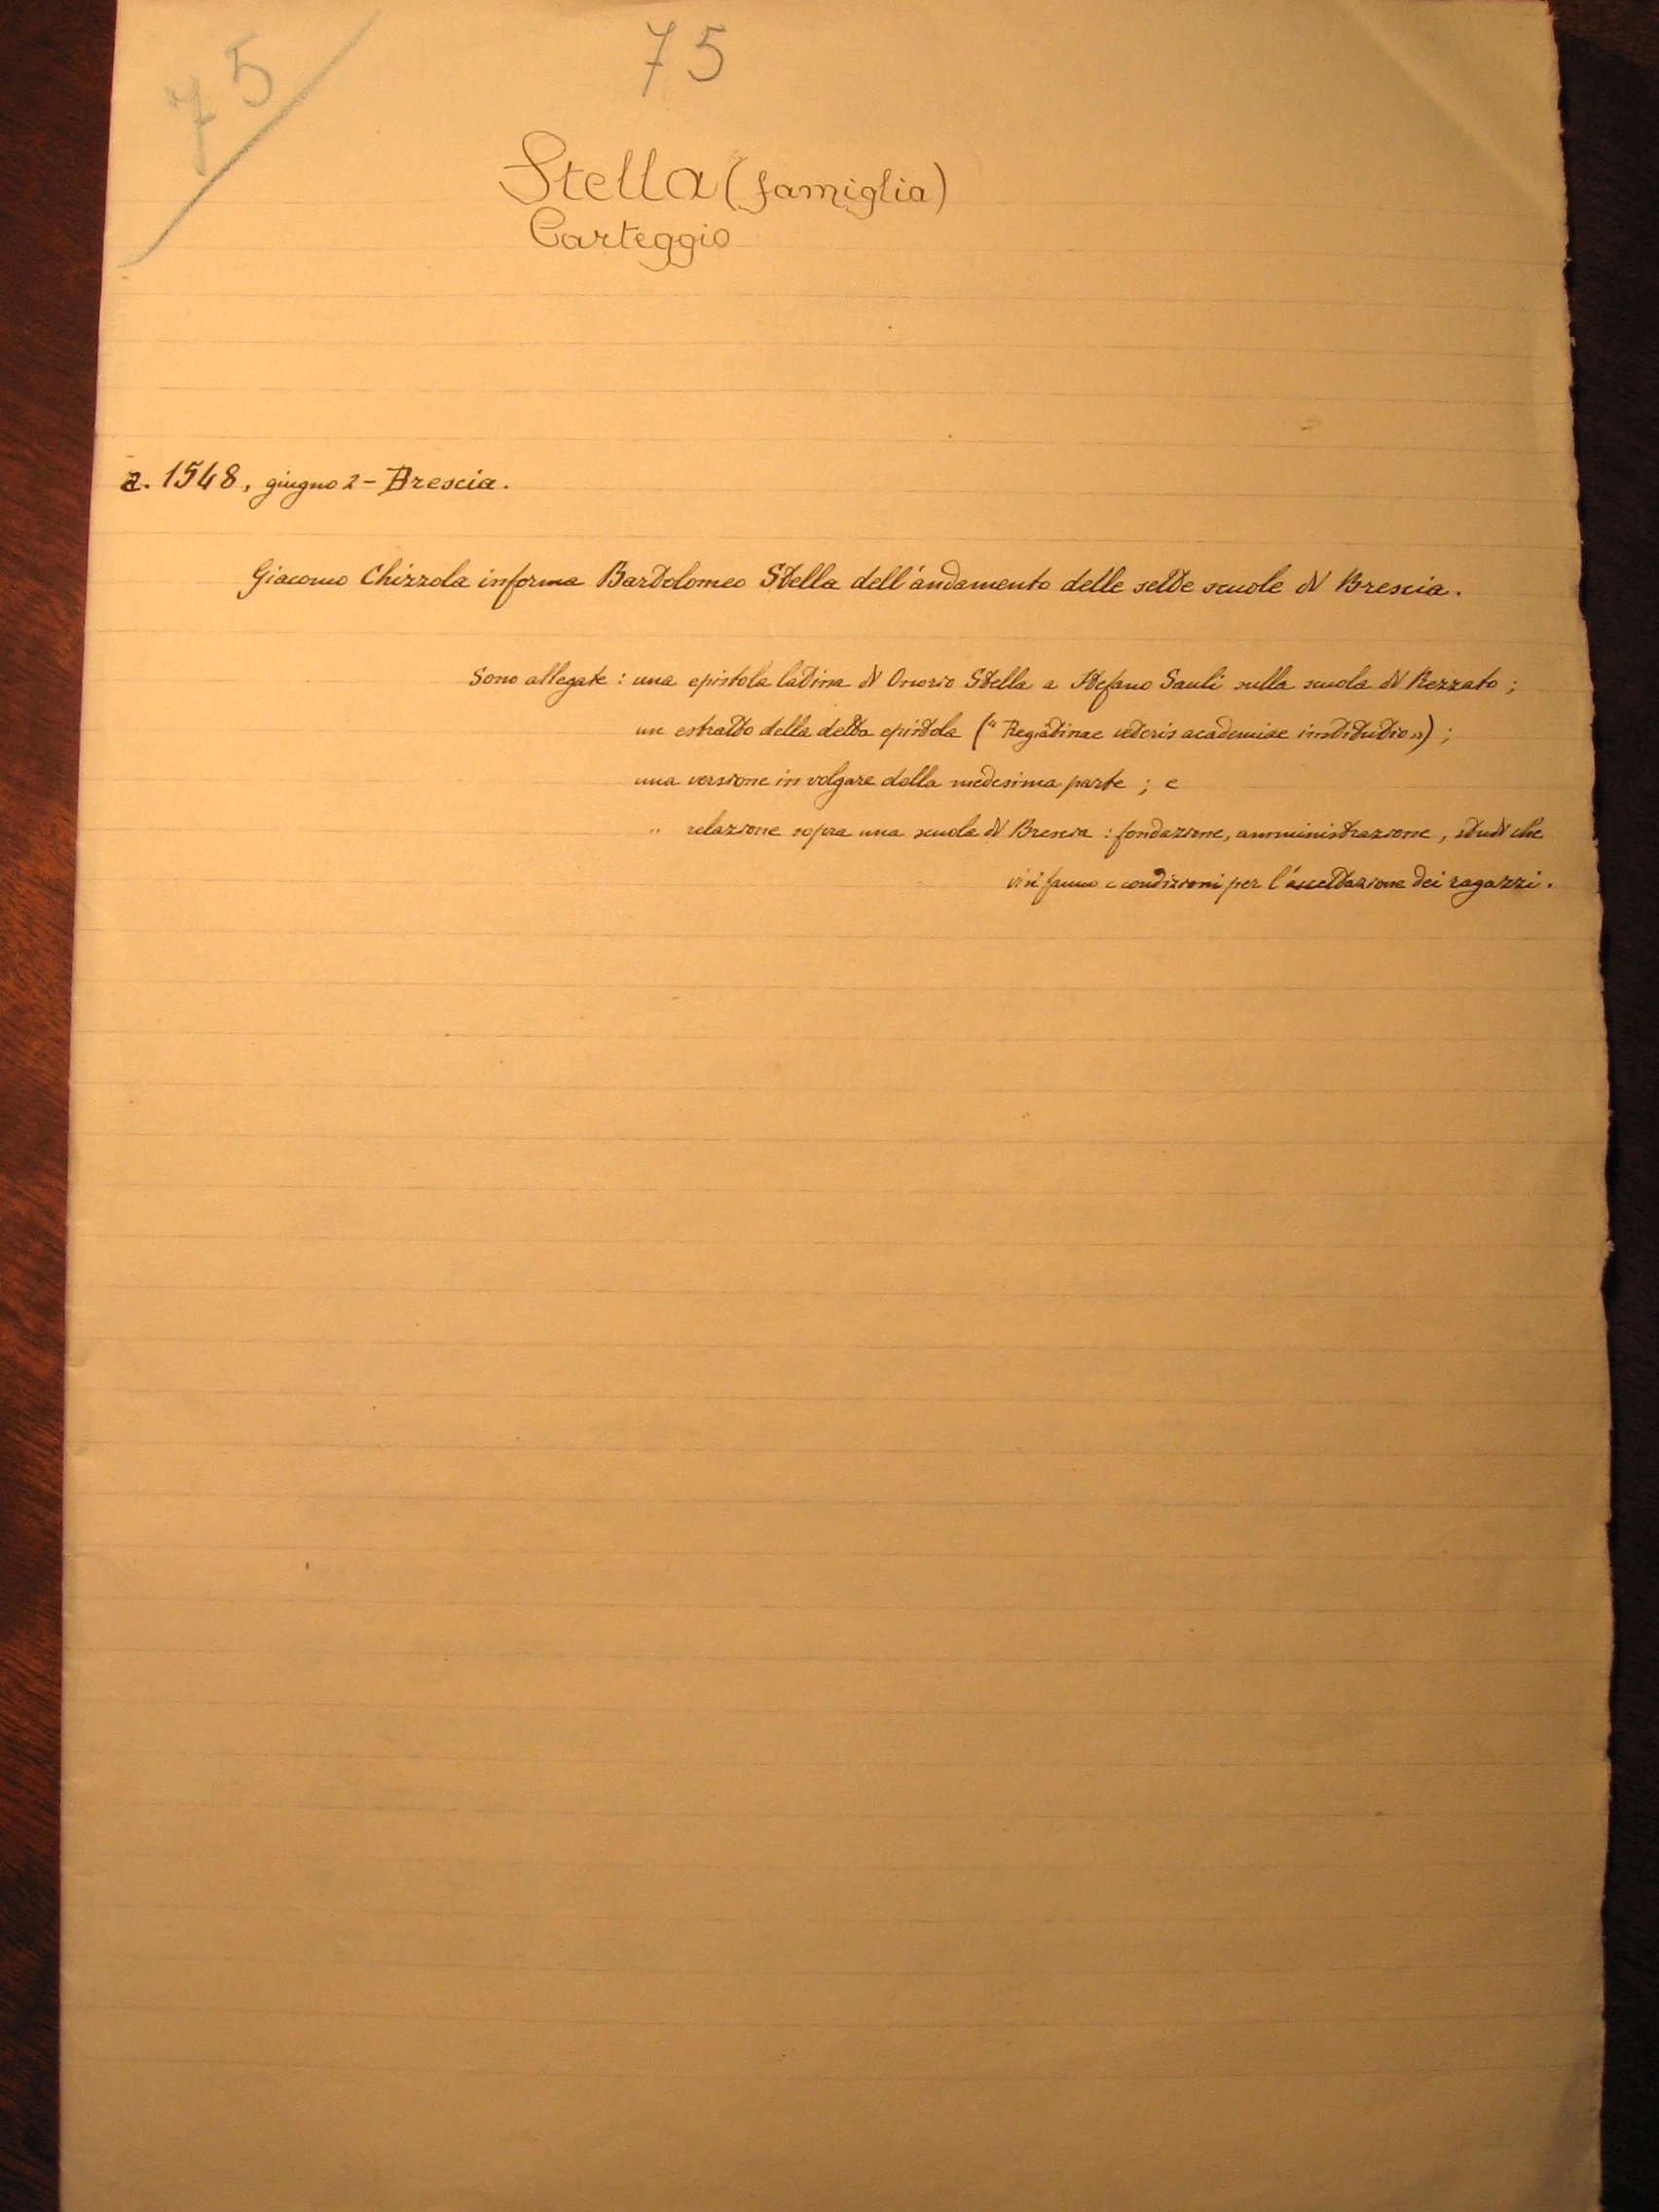 75
75
Stella (famiglia)
Carteggio
a. 1548, giugno 2 - Brescia.
Giacomo Chizzola informa Bartolomeo Stella dell'andamento delle sette scuole di Brescia.
Sono allegate : una epistola latina di Onorio Stella a Stefano Sauli sulla scuola di Rezzato ;
un estratto della detta epistola (" Regiatinae veteris academiae institutio ») ;
una versione in volgare della medesima parte ; e
" relazione sopra una scuola di Brescia : fondazione, amministrazione, studi che
vi si fanno e condizioni per l'accettazione dei ragazzi.